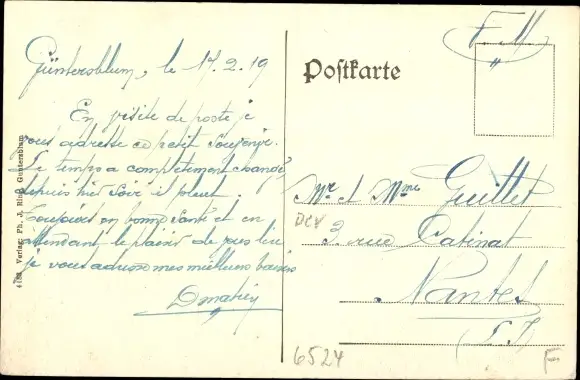 Güntersblum, le 14.2.19
En visite de poste je
vous adresse ce petit souvenir.
Le temps a complètement changé
depuis hier soir il pleut.
Toujours en bonne santé et en
attendant le plaisir de vous lire
je vous adresse mes meilleurs baisers
4182 Verlag: Ph. J. Guntersblum
F.M
Postkarte
Mr et Mme Guillet
3. rue Cabinat
Nantes
6524
F